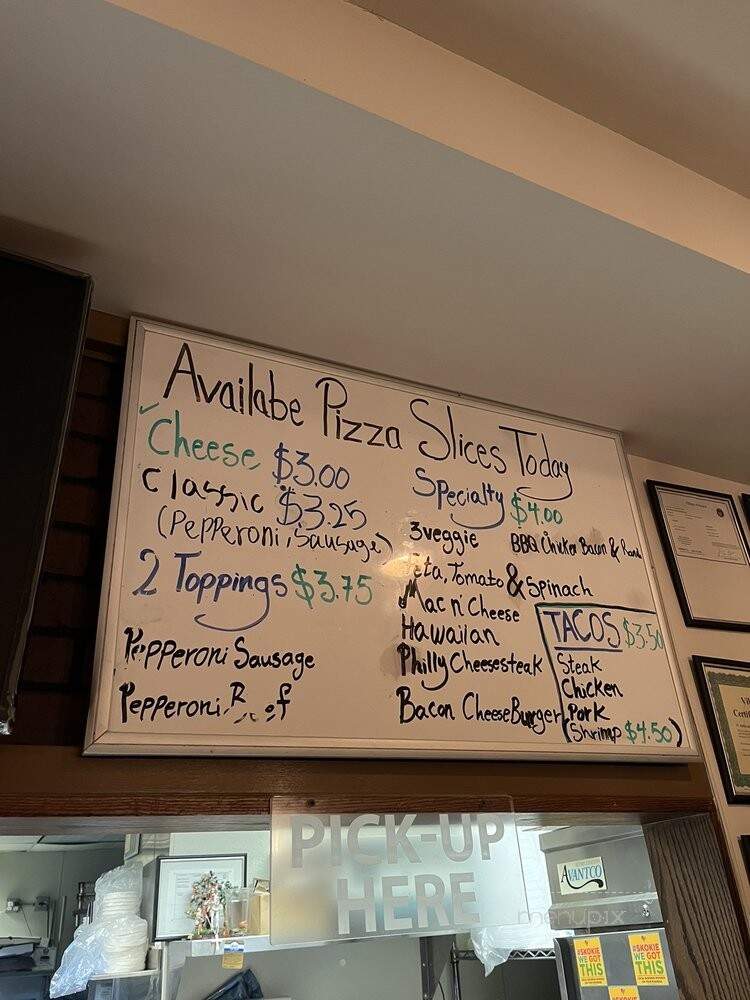 Availabe Pizza Slices Today
Cheese $3.00
Classic $3.25
(Pepperoni, Sausage)
2 Toppings $3.75
Pepperoni Sausage
Pepperoni
Specialty $4.00
3veggie
BBQ Chicken Bacon &
Feta, Tomato & Spinach
Mac n' Cheese
Hawaiian
Philly Cheesesteak
Bacon CheeseBurger
TACOS $3.50
Steak
Chicken
Pork
(Shrimp $4.50)
PICK-UP
HERE
AVANTCO
menupix
#SKOKIE
WE GOT
THIS
#SKOKIE
WE GOT
THIS
#SKOKIE